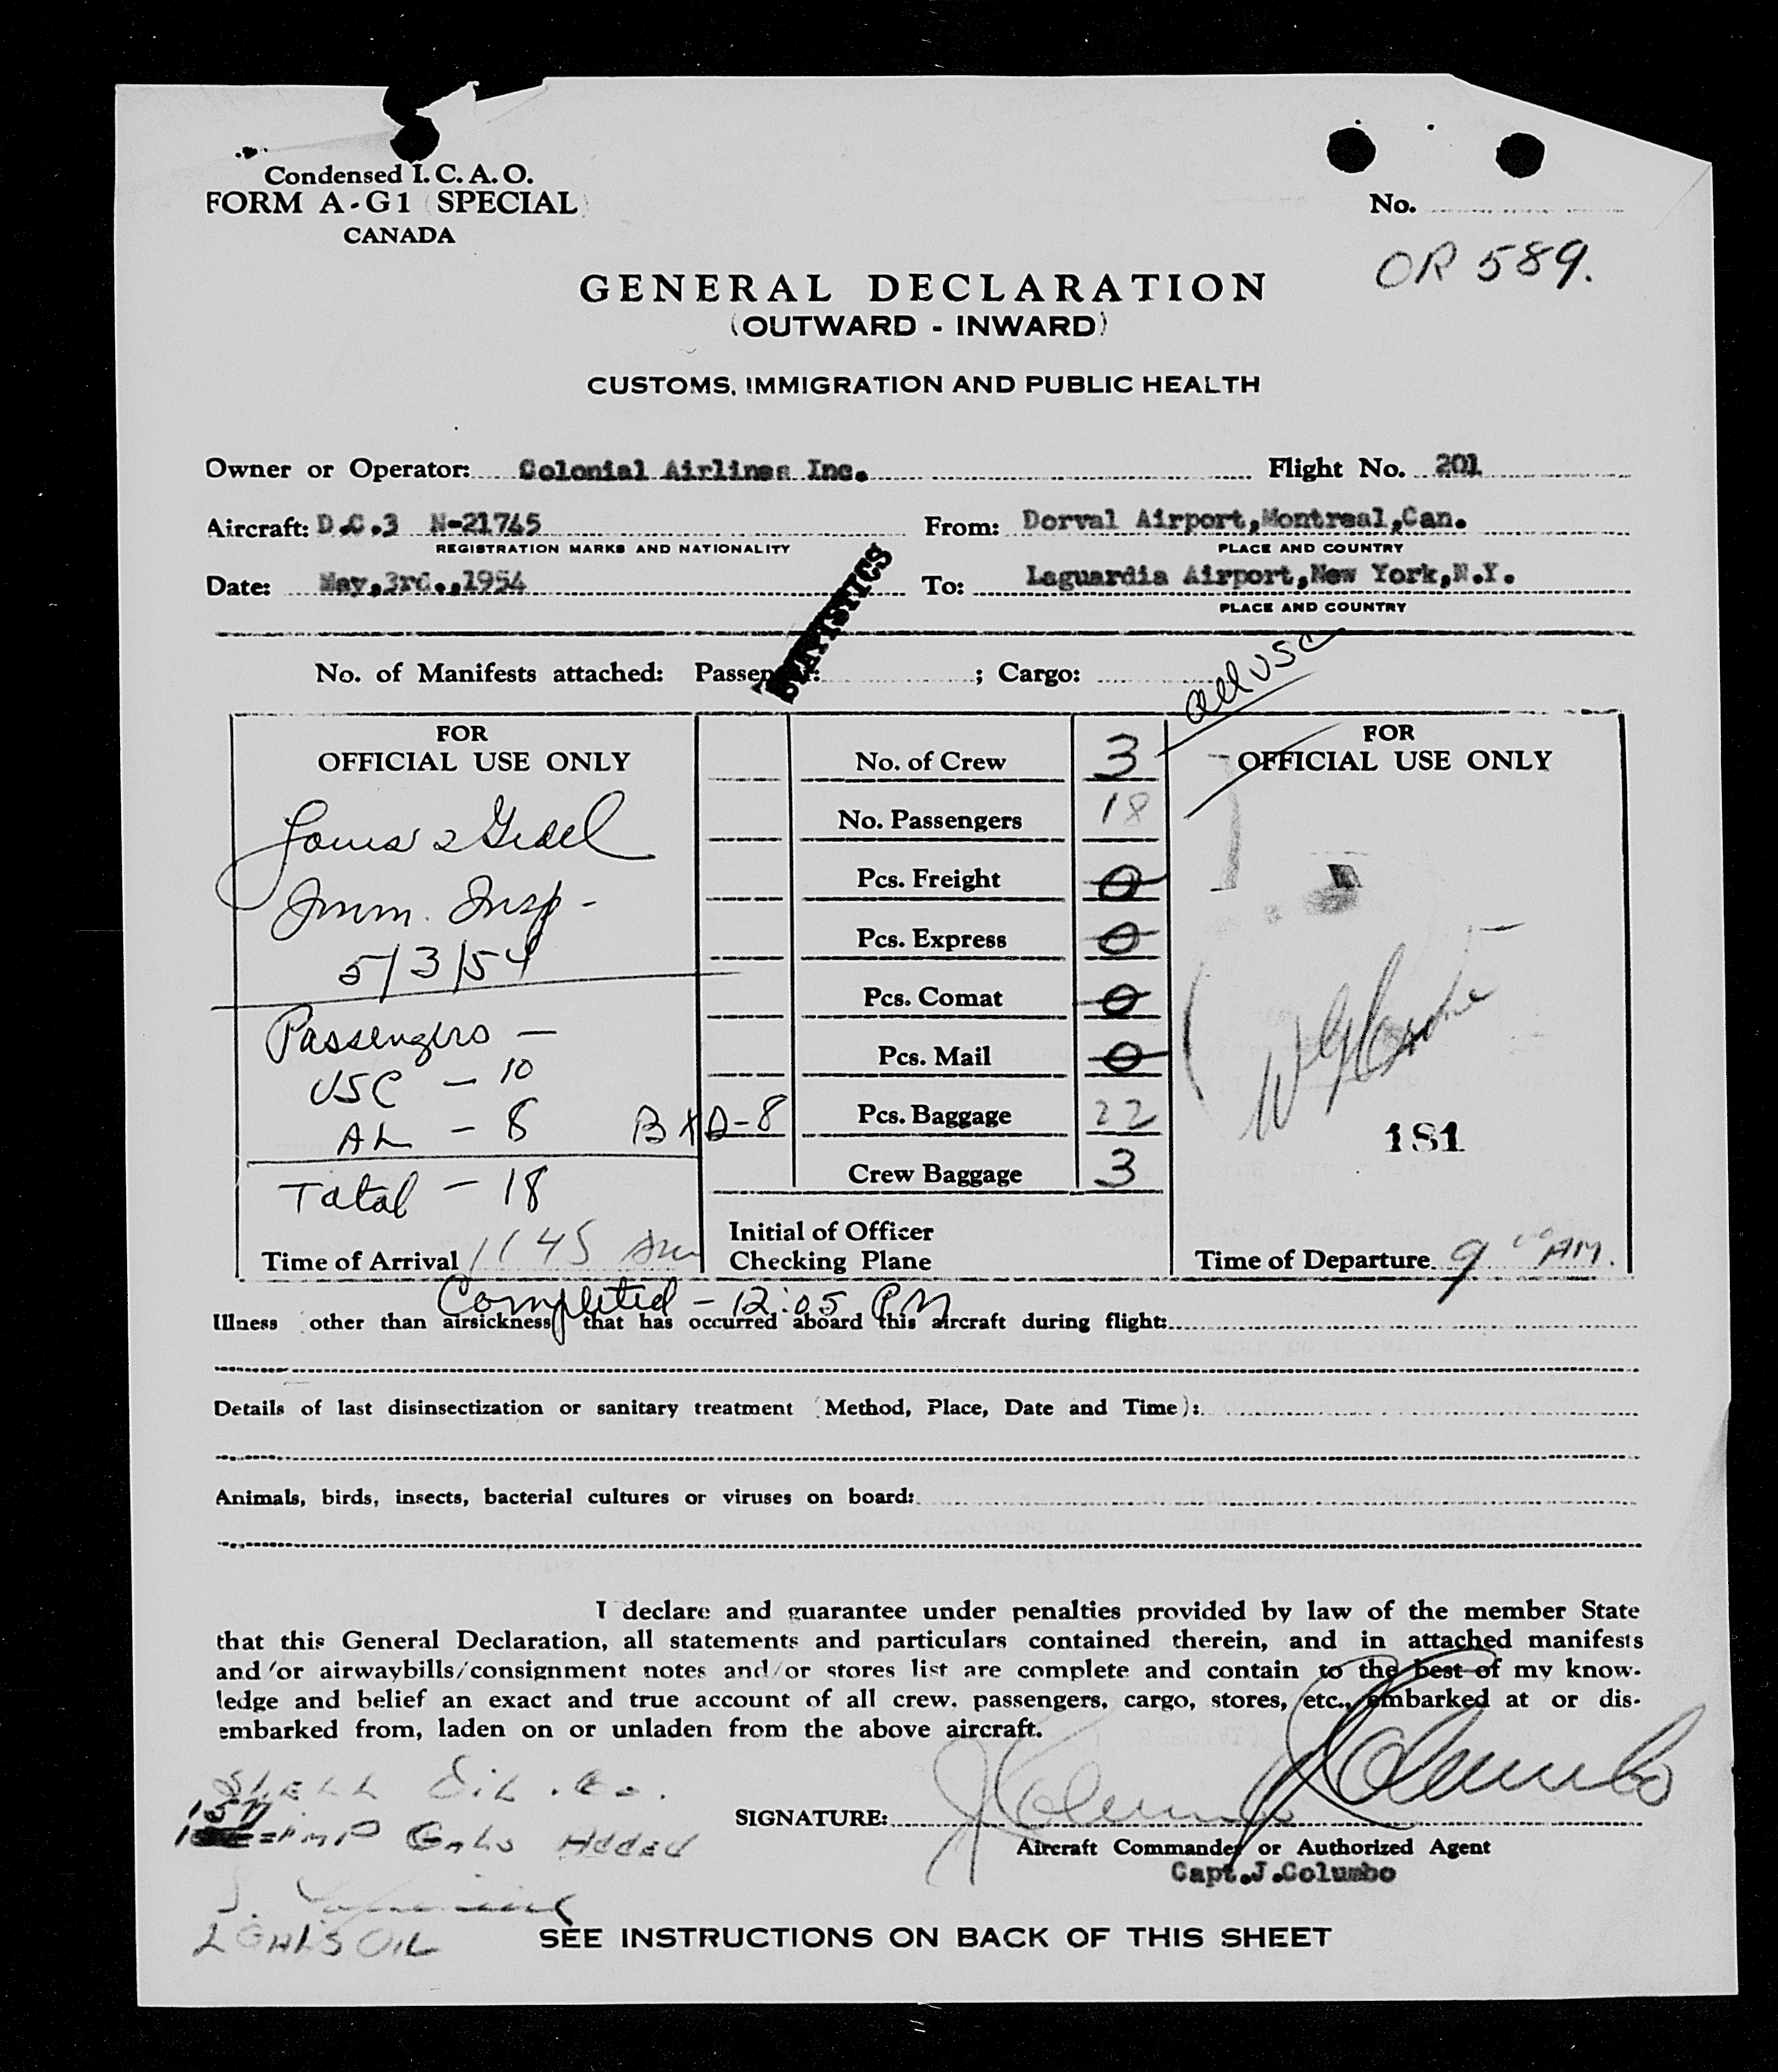 Condensed I.C.A.O.
FORM A-G1 (SPECIAL)
CANADA
No.
OR 589.
GENERAL DECLARATION
(OUTWARD - INWARD)
CUSTOMS, IMMIGRATION AND PUBLIC HEALTH
Owner or Operator: Colonial Airlines Inc. Flight No. 201
Aircraft: D.C.3 N-21745 From: Dorval Airport,Montreal,Can.
REGISTRATION MARKS AND NATIONALITY PLACE AND COUNTRY
Date: May,3rd.,1954 To: Laguardia Airport,New York,N.Y.
PLACE AND COUNTRY
STATISTICS
No. of Manifests attached: Passenger: ; Cargo:
all USC
FOR
OFFICIAL USE ONLY
Imm. Insp -
5/3/54
Passengers -
USC - 10
AL - 8 B X D-8
Total - 18
Time of Arrival 1145 Am
No. of Crew 3
No. Passengers 18
Pcs. Freight 0
Pcs. Express 0
Pcs. Comat 0
Pcs. Mail 0
Pcs. Baggage 22
Crew Baggage 3
Initial of Officer
Checking Plane
FOR
OFFICIAL USE ONLY
181
Time of Departure 9 00 AM.
Completed - 12:05 PM
Illness other than airsickness that has occurred aboard this aircraft during flight:
Details of last disinsectization or sanitary treatment (Method, Place, Date and Time):
Animals, birds, insects, bacterial cultures or viruses on board:
I declare and guarantee under penalties provided by law of the member State
that this General Declaration, all statements and particulars contained therein, and in attached manifests
and/or airwaybills/consignment notes and/or stores list are complete and contain to the best of my know-
ledge and belief an exact and true account of all crew, passengers, cargo, stores, etc., embarked at or dis-
embarked from, laden on or unladen from the above aircraft.
SHELL OIL. Co.
157
IMP GALS ADDED
SIGNATURE: J Columbo J Columbo
Aircraft Commander or Authorized Agent
Capt.J.Columbo
2 GALS OIL
SEE INSTRUCTIONS ON BACK OF THIS SHEET